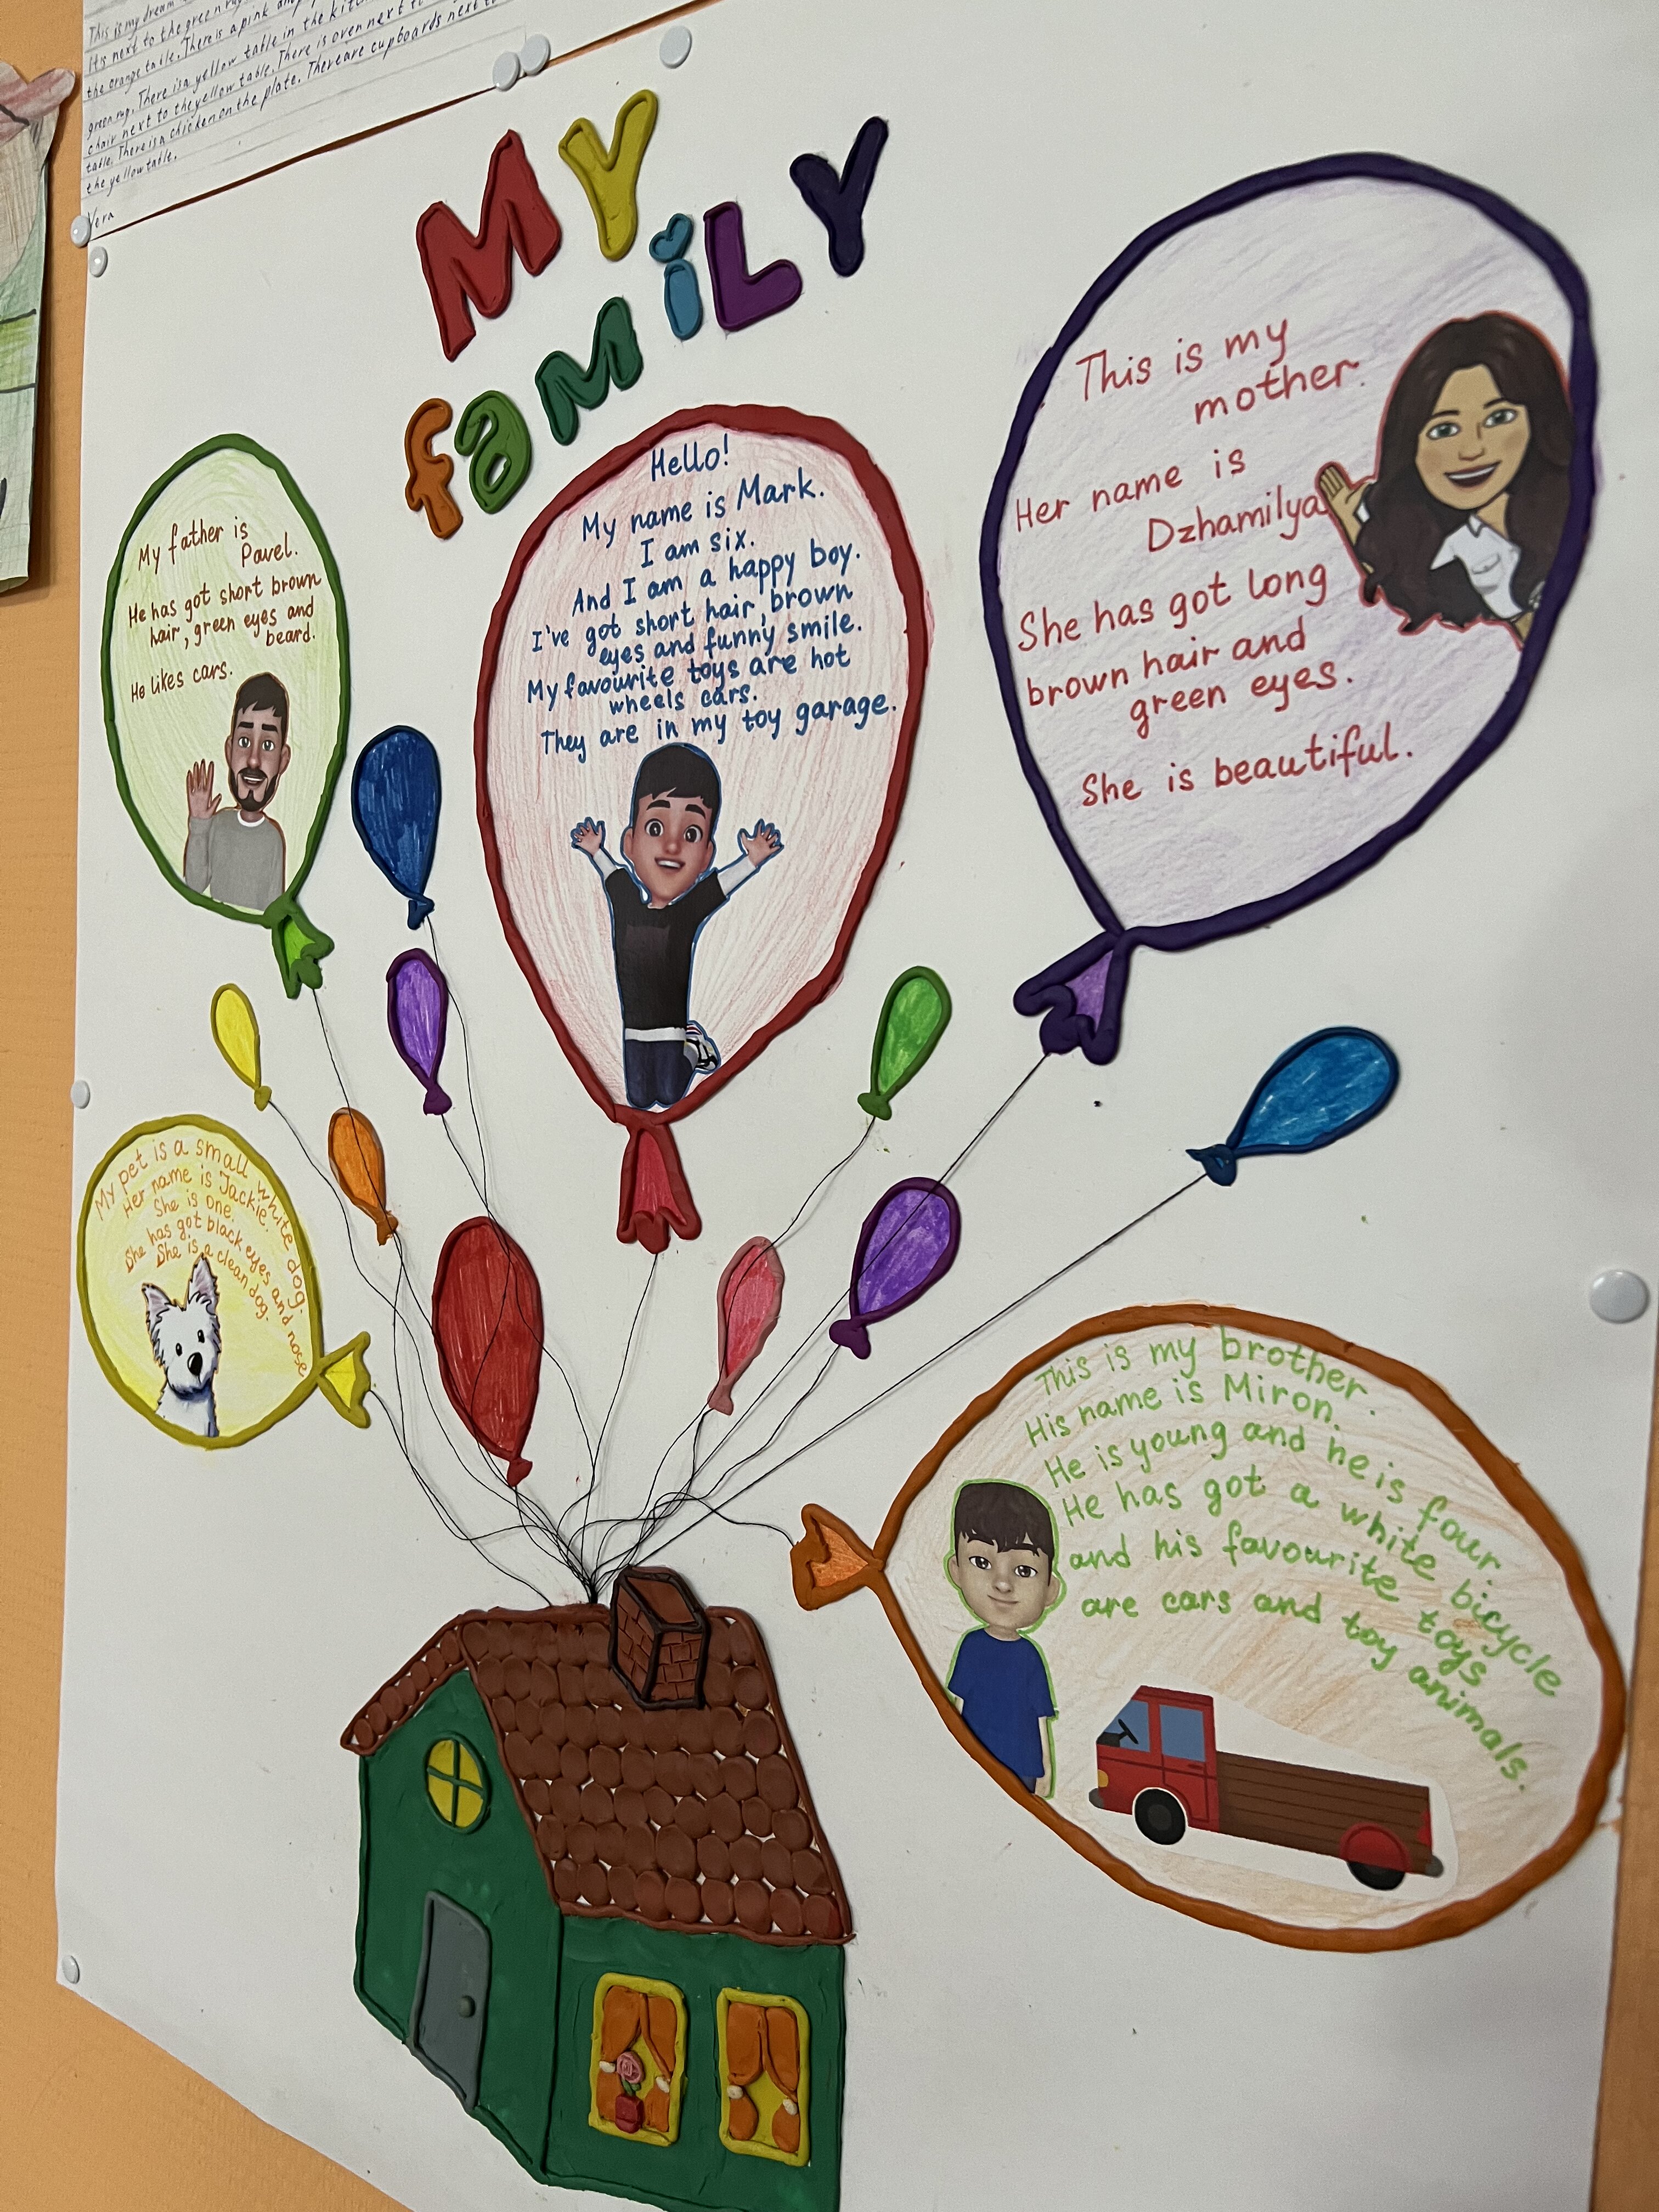 This is my dream
It is next to the green rug
the orange table. There is a pink and
green rug. There is a yellow table in the
chair next to the yellow table. There is oven next to
table. There is a chicken on the plate. There are cupboards next to
the yellow table.
Vera
MY
faMiLY
My father is
Pavel.
He has got short brown
hair, green eyes and
beard.
He likes cars.
Hello!
My name is Mark.
I am six.
And I am a happy boy.
I've got short hair, brown
eyes and funny smile.
My favourite toys are hot
wheels cars.
They are in my toy garage.
This is my
mother.
Her name is
Dzhamilya
She has got long
brown hair and
green eyes.
She is beautiful.
My pet is a small white dog.
Her name is Jackie.
She is one.
She has got black eyes and nose
She is a clean dog.
This is my brother.
His name is Miron.
He is young and he is four
He has got a white bicycle
and his favourite toys
are cars and toy animals.